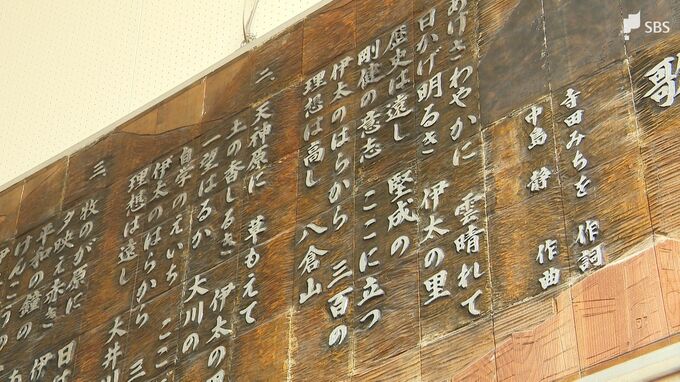 SBS
歌
寺田みちを 作詞
中島 静 作曲
あげさわやかに 雲晴れて
日かげ明るき 伊太の里
歴史は遠し 堅成の
剛健の意志 ここに立つ
伊太のはらから 三百の
理想は高し 八倉山
二、
天神原に 草もえて
土の香しるき 伊太の
一望はるか 大川の
自学のえいち ここ
伊太のはらから 三
理想は遠し 大井川
三、
牧のが原に 日は
夕映え赤き 伊
平和の鐘の
けんこうの